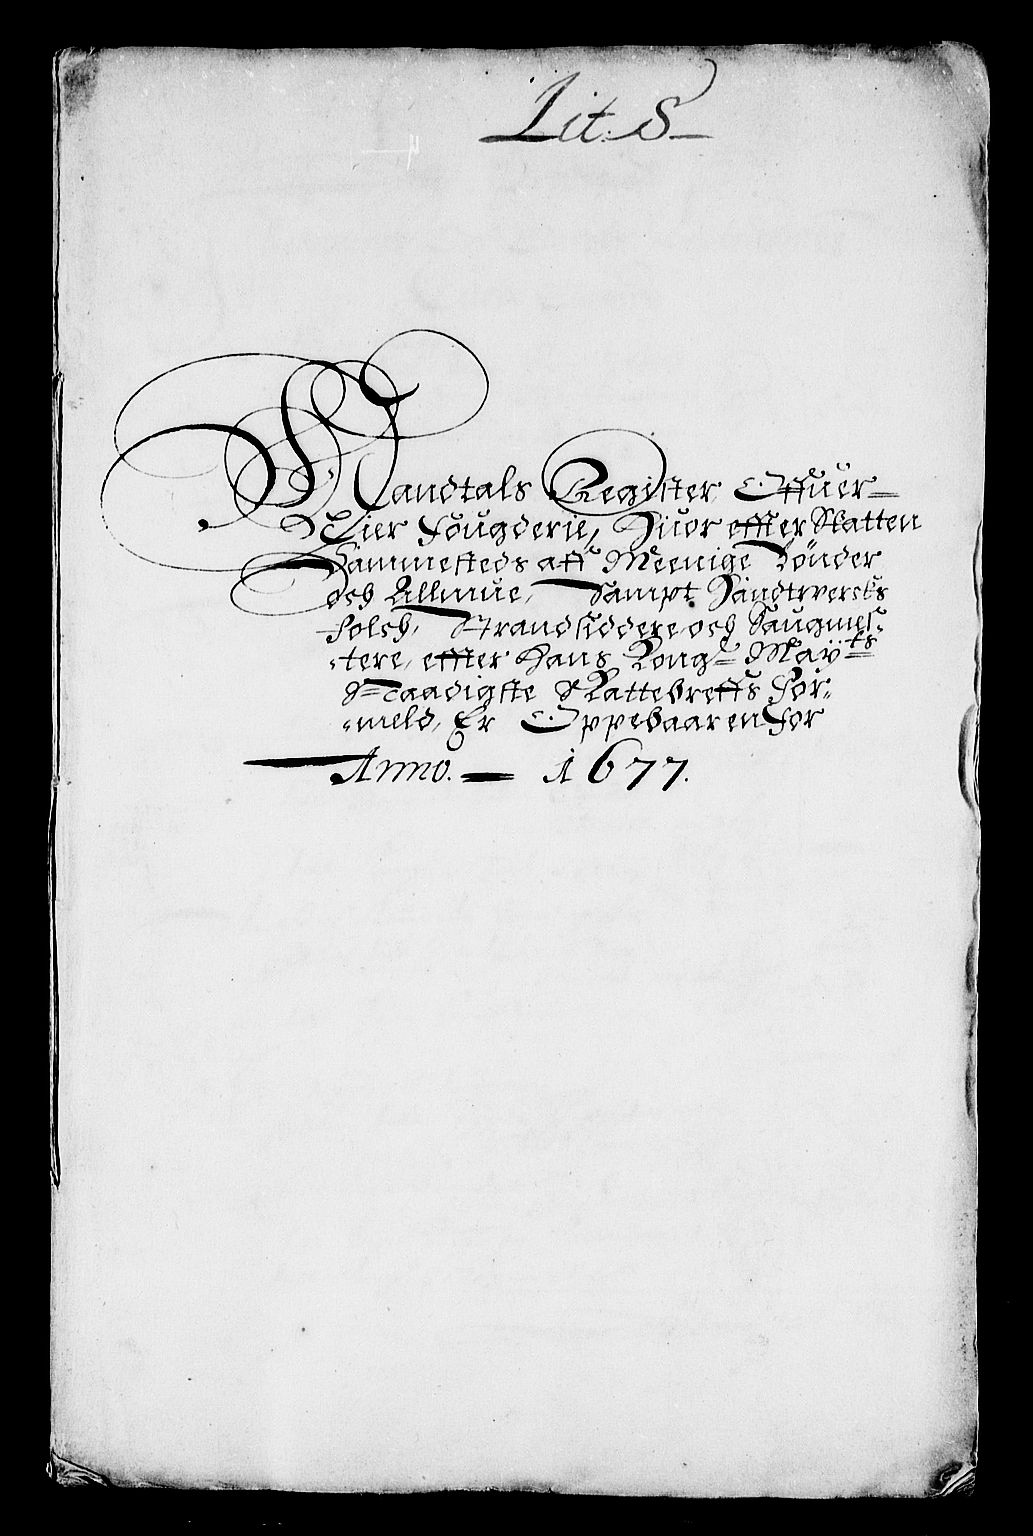 Lit. S
Mandtals Register Offuer
Lier Fougderie, Huor effter Skatten
Sammesteds aff Meenige Bönder
och Allmue, Sampt Handtwercks
folch, Strandsiddere, och Saugmes-
-tere, effter Hans Kong: Mayts
Naadigste Skattebreffs For-
-meld, Er Oppebaaren For
Anno. 1677.